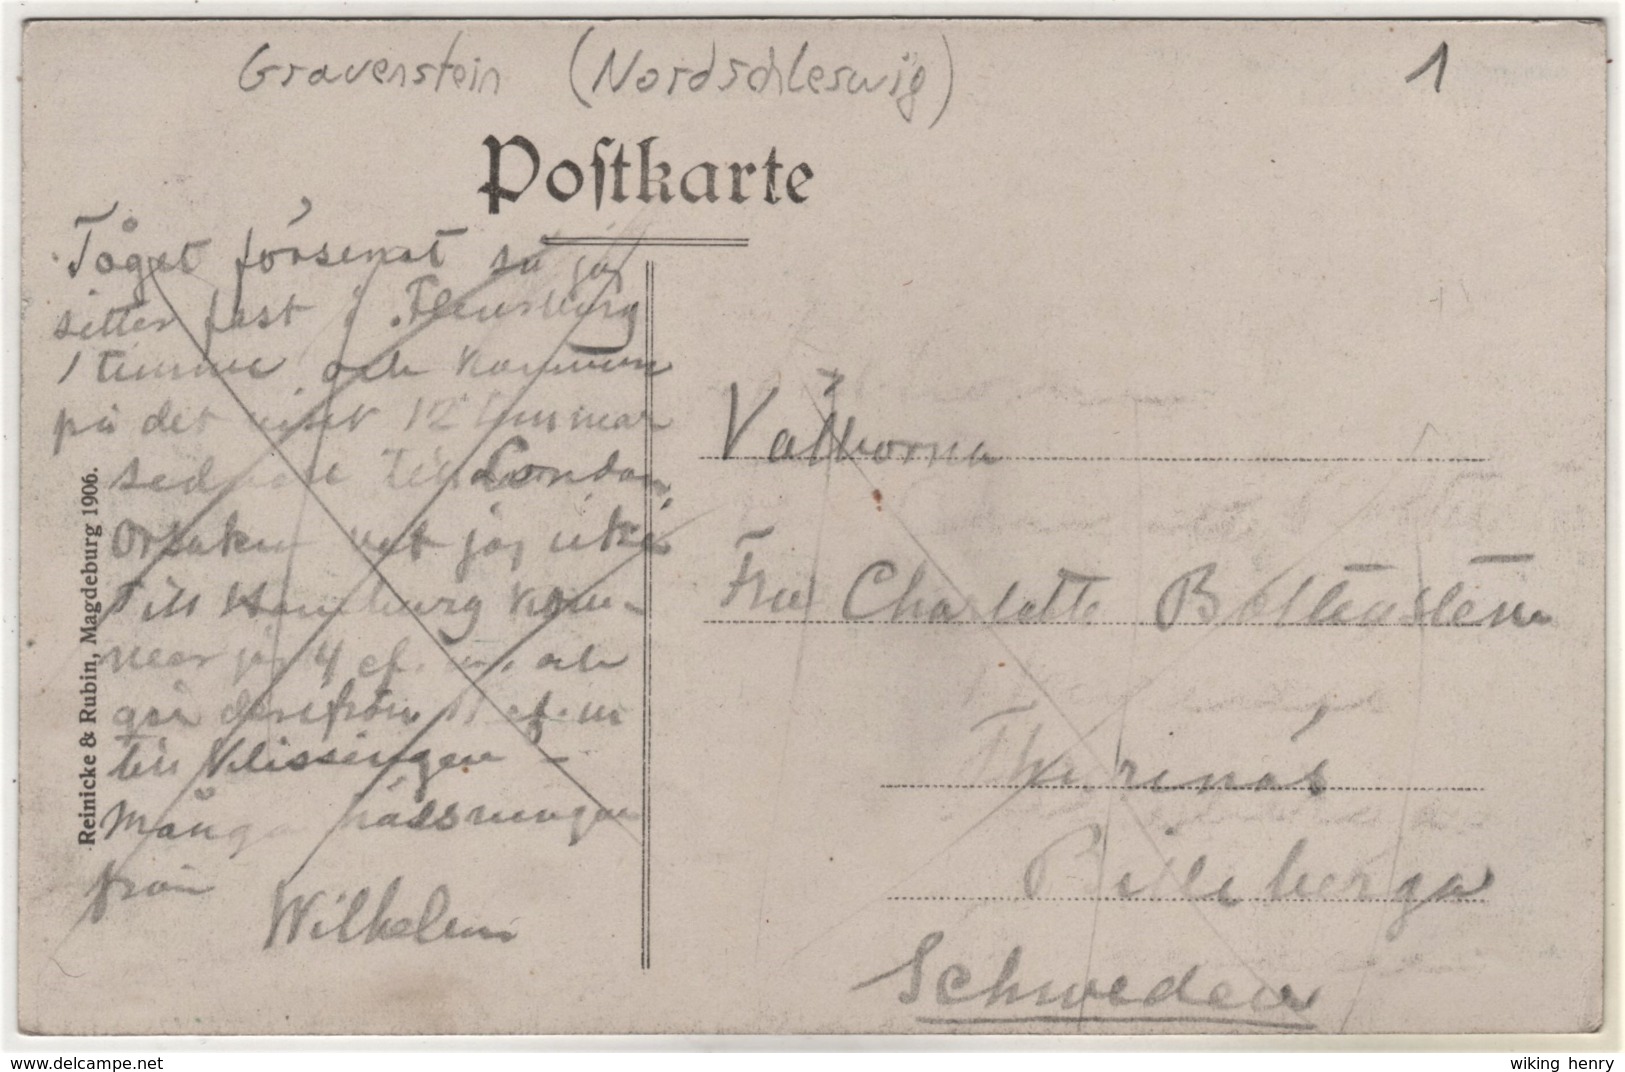 Gravenstein (Nordschleswig)
1
Postkarte
Tåget försenat så jag
sitter fast i Flensburg
1 timme och kommer
på det viset 12 timmar
senare till London.
Orsaken vet jag icke.
Till Hamburg kom-
mer jag 4 ef. m. och
går därifrån 11 ef. m
till Vlissingen –
Många hälsningar
från
Wilhelm
Reinicke & Rubin, Magdeburg 1906.
Välborna
Fru Charlotte
Billeberga
Schweden
wiking henry